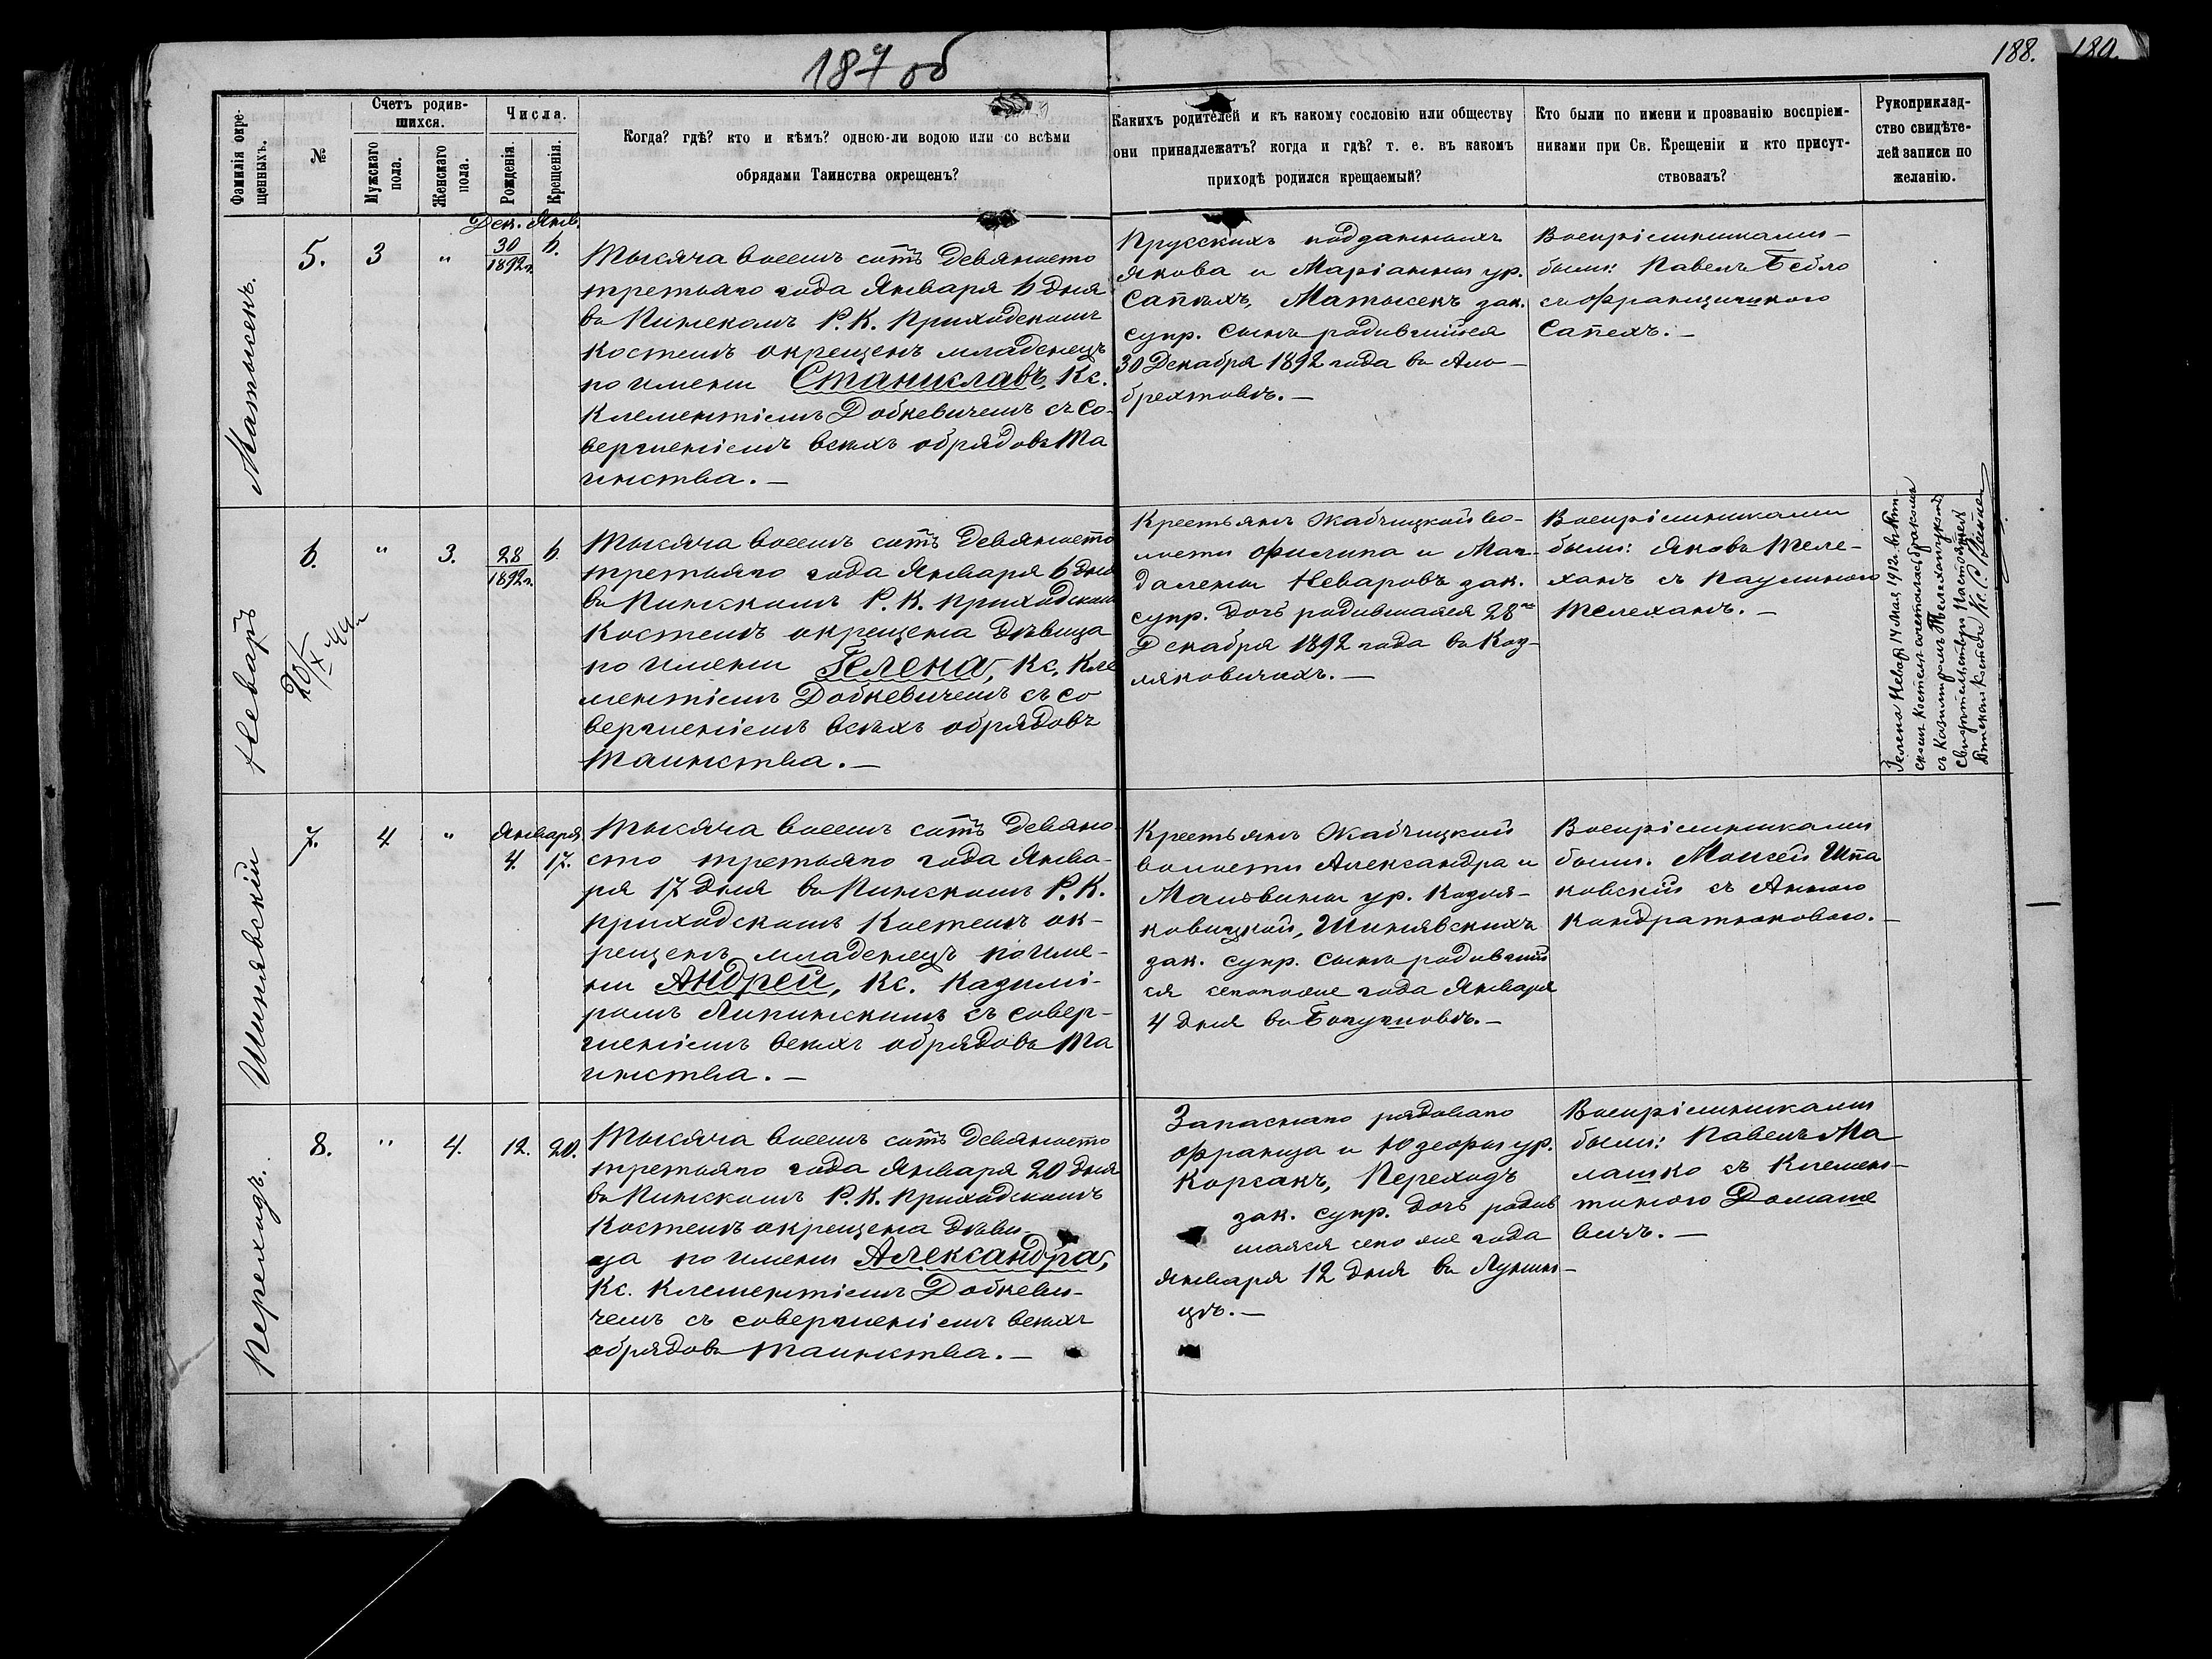 187 об
188.
180.
Фамилія окре-
щенныхъ.
№
Счетъ родив-
шихся.
Мужскаго
пола.
Женскаго
пола.
Числа.
Рожденія.
Крещенія.
Когда? гдѣ? кто и кѣмъ? одною-ли водою или со всѣми
обрядами Таинства окрещенъ?
Какихъ родителей и къ какому сословію или обществу
они принадлежатъ? когда и гдѣ? т. е. въ какомъ
приходѣ родился крещаемый?
Кто были по имени и прозванію воспріем-
никами при Св. Крещеніи и кто присут-
ствовалъ?
Рукоприклад-
ство свидѣте-
лей записи по
желанію.
Матысекъ.
5.
3
"
Дек.
30
1892 г.
Янв.
6.
Тысяча восемъ сотъ девяносто
третьяго года Января 6 дня
въ Пинскомъ Р. К. Приходскомъ
Костелѣ окрещенъ младенецъ
по имени Станиславъ, Кс.
Клементіемъ Добкевичемъ съ со-
вершеніемъ всѣхъ обрядовъ Та
инства. —
Прусскихъ подданныхъ
Якова и Маріанны ур.
Сапѣхъ, Матысекъ зак.
супр. сынъ родившійся
30 Декабря 1892 года въ Аль-
брехтовѣ. —
Воспріемниками
были: Павелъ Бебло
съ Францишкою
Сапехъ. —
Неваръ
6.
"
3.
28
1892 г.
6
Тысяча восемъ сотъ девяносто
третьяго года Января 6 дня
въ Пинскомъ Р. К. Приходскомъ
Костелѣ окрещена дѣвица
по имени Гелена, Кс. Кле
ментіемъ Добкевичемъ съ со
вершеніемъ всѣхъ обрядовъ
Таинства. —
Крестьянъ Жабчицкой во-
лости Филипа и Маг-
далены Неваровъ зак.
супр. дочь родившаяся 28го
Декабря 1892 года въ Коз-
ляковичахъ. —
Воспріемниками
были: Яковъ Теле-
ханъ съ Паулиною
Телеханъ. —
Гелена Неваръ 14 Мая 1912 г. въ
скомъ Костелѣ сочеталась бракомъ
съ Казимиромъ
свидѣтельствую Настоятель
Костела Кс.
Шинявскій
7.
4
"
Января
4.
17.
Тысяча восемъ сотъ девяно-
сто третьяго года Янва-
ря 17 дня въ Пинскомъ Р. К.
приходскомъ Костелѣ ок-
рещенъ младенецъ по име-
ни Андрей, Кс. Казимі-
ромъ Липинскимъ съ совер-
шеніемъ всѣхъ обрядовъ Та
инства. —
Крестьянъ Жабчицкой
волости Александра и
Мальвины ур. Козля-
ковицкой, Шинявскихъ
зак. супр. сынъ родившій
ся сего года Января
4 дня въ Богушовѣ. —
Воспріемниками
были: Моисей Шпа
ковскій съ Анною
Кондратюковою. —
Переходъ.
8.
"
4.
12.
20.
Тысяча восемъ сотъ девяносто
третьяго года Января 20 дня
въ Пинскомъ Р. К. Приходскомъ
Костелѣ окрещена дѣви-
ца по имени Александра,
Кс. Клементіемъ Добкеви-
чемъ съ совершеніемъ всѣхъ
обрядовъ Таинства. —
Запаснаго рядоваго
Франца и Юзефы ур.
Корсакъ, Переходъ
зак. супр. дочь родив
шаяся сего же года
Января 12 дня въ Лунин-
цѣ. —
Воспріемниками
были: Павелъ Ма
лашко съ Клемен-
тиною Домаше
вичъ. —